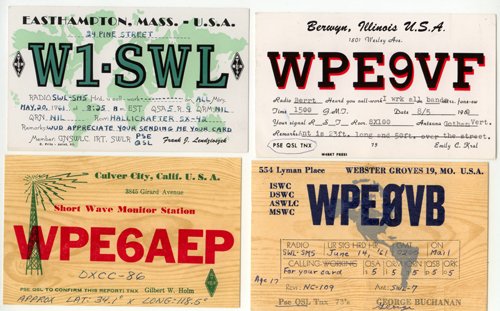 EASTHAMPTON, MASS. - U.S.A.
24 PINE STREET
W1-SWL
RADIO SWL-SM5 Hrd. ur sig-work on ALL Mcs.
MAY 20, 1961 at 8:25 P EST. QSA 5 R 9 QRM NIL
QRN: NIL. Rcvr. HALLICRAFTER SX-42
Remarks WUD APPRECIATE YOUR SENDING ME YOUR CARD
Member: GNSWLC IRT. SWLR PSE QSL
Frank J. Lendzioszek
Berwyn, Illinois U.S.A.
1501 Wesley Ave.
WPE9VF
Radio Berrt Heard you call-work I wrk all bands.
Time 1500 G.M.T. Date 8/5
Your signal R S T Rcvr SX100 Antenna Gotham Vert.
Remarks Ant is 23ft. long and 50ft. over the street.
PSE QSL TNX 73 Emily C. Kral
Culver City, Calif. U. S. A.
3845 Girard Avenue
Short Wave Monitor Station
WPE6AEP
DXCC-86
PSE QSL TO CONFIRM THIS REPORT! TNX Gilbert W. Holm
APPROX LAT: 34.1° x LONG: 118.5°
554 Lyman Place WEBSTER GROVES 19, MO. U.S.A.
ISWC
DSWC
ASWLC
MSWC
WPEØVB
RADIO UR SIG HRD HR GMT ON
SWL-SM5 June 14, '61 0200 Mail
CALLING WORKING QSA
For your card
Age 17
Rcvr. NC-109 Ant. SWL-7
Pse QSL Tnx 73's GEORGE BUCHANAN
George